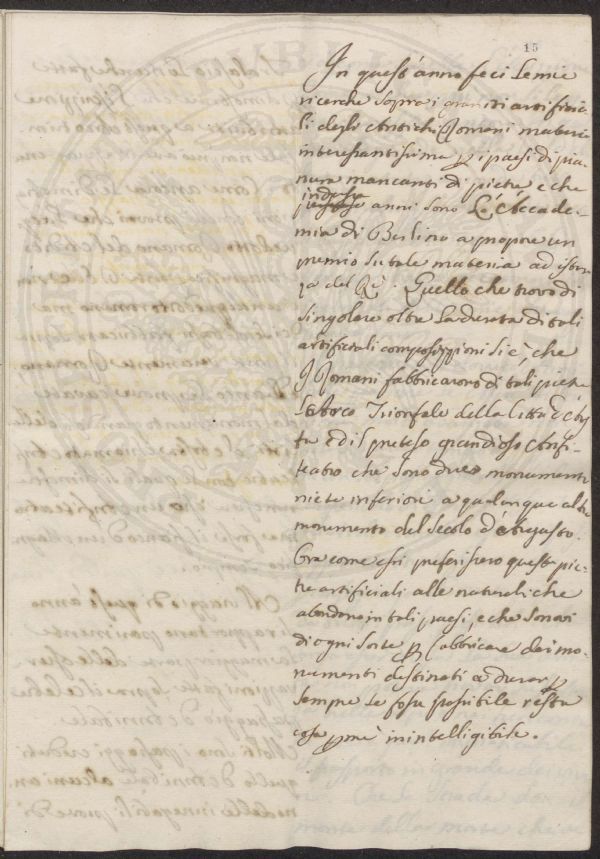 15
In quest'anno feci le mie
ricerche sopra i graniti artificia-
li degli Antichi Romani materia
interessantissima p i paesi di pia-
nura mancanti di pietre e che
indusse
anni sono l'Accade-
mia di Berlino a propore un
premio su tale materia ad istan-
za del Rè. Quello che trovo di
singolare oltre la durata di tali
artificiali composizzioni si è, che
I Romani fabbricarono di tali pietre
l'Arco Trionfale della Città d'Aos
ta ed il preteso grandioso Anfi-
teatro che sono due monumenti
niete inferiori a qualonque altro
monumento del secolo d'Augusto.
Ora come essi preferissero queste pie-
tre artificiali alle naturali che
abondano in tali paesi, e che sonovi
di ogni sorte p fabbricare dei mo-
numenti destinati a durar p
sempre se fosse possibile resta
cosa p me inintelligibile.